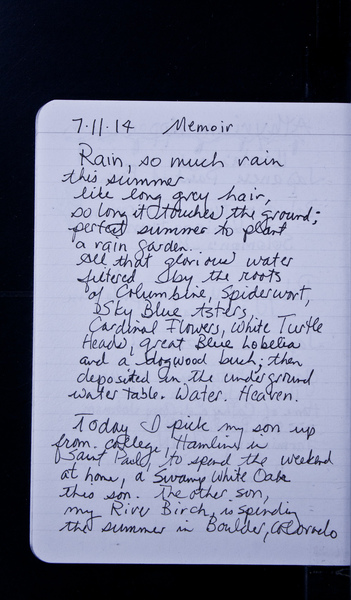 7.11.14 Memoir
Rain, so much rain
this summer
like long grey hair,
so long it touches the ground;
perfect summer to plant
a rain garden.
All that glorious water
filtered by the roots
of Columbine, Spiderwort,
Sky Blue Asters,
Cardinal Flowers, White Turtle
Heads, great Blue Lobelia
and a dogwood bush; then
deposited in the underground
water table. Water. Heaven.
Today I pick my son up
from college, Hamline in
Saint Paul, to spend the weekend
at home, a Swamp White Oak
this son. The other son,
my River Birch, is spending
the summer in Boulder, Colorado